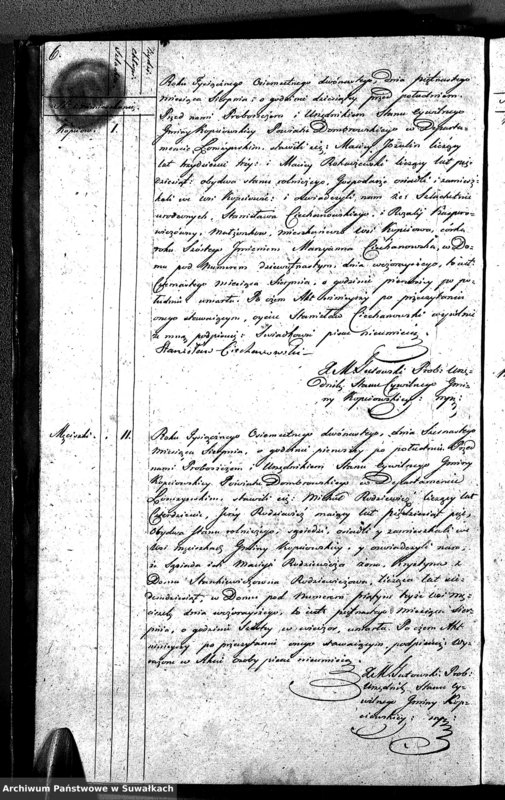 6.
Kopciowo. 1.
Roku Tysiącznego Osiemsetnego dwónastego, dnia piętnastego
miesiąca Sierpnia: o godzinie dziesiątey przed południem.
Przed nami Proboszczem i Urzędnikiem Stanu Cywilnego
Gminy Kopciowskiey Powiatu Dombrowskiego w Departa-
mencie Łomżyńskim, stawili się: Maciey liczący
lat trzydzieści trzy: i Maciey liczący lat pięć
dziesiąt: obydwa stanu rolniczego, Gospodarze osiadli i zamiesz-
kali we wsi Kopciowie: i oświadczyli nam że z Szlachetnie
urodzonych, Stanisława Ciechanowskiego, i Rozalij Kaspro-
wiczówny, Małżonków, mieszkańców wsi Kopciowa, corka
roku Szóstego Jmieniem Maryanna Ciechanowska, w Do-
mu pod Numerem dziewiętnastym, dnia wczorayszego, to iest
Czternastego miesiąca Sierpnia, o godzinie pierwszey po po-
łudniu umarła. Po czem Akt ninieyszy po przeczytaniu
onego stawaiącym, oyciec Stanisław Ciechanowski wespół
ze mną podpisał: Świadkowie pisać nieumieią.
Stanisław Ciechanowski
X. M. Sutowski: Prob: Urzę-
dnik Stanu Cywilnego Gmi-
ny Kopciowskiey: mp:
Męciszki. 11.
Roku Tysiącznego Osiemsetnego dwónastego, dnia Szesnastego
miesiąca Sierpnia, o godzinie pierwszey po południu. Przed
nami Proboszczem i Urzędnikiem Stanu Cywilnego Gminy
Kopciowskiey Powiatu Dombrowskiego w Departamencie
Łomżyńskim, stawili się: Michał Rudziewicz liczący lat
Czterdzieści, Jerzy Rudziewicz maiący lat pięćdziesiąt pięć,
Obydwa stanu rolniczego, sąsiedzi, osiadli y zamieszkali we
wsi Gminy Kopciowskiey, y oświadczyli nam,
iż Sąsiada ich Macieja Rudziewicza żona, Krystyna z
Domu Stankiewiczówna Rudziewiczowa, licząca lat sie-
demdziesiąt, w Domu pod Numerem piątym teyże wsi Mę-
ciszek, dnia wczorayszego, to iest piętnastego Miesiąca Sier-
pnia, o godzinie Szóstey w wieczor, umarła. Po czem Akt
ninieyszy po przeczytaniu onego stawaiącym, podpisałem: Wy-
rażone w Akcie Osoby pisać nieumieią.
X. M. Sutowski: Prob:
Urzędnik Stanu Cy-
wilnego Gminy Kop-
ciowskiey: mp:
Archiwum Państwowe w Suwałkach